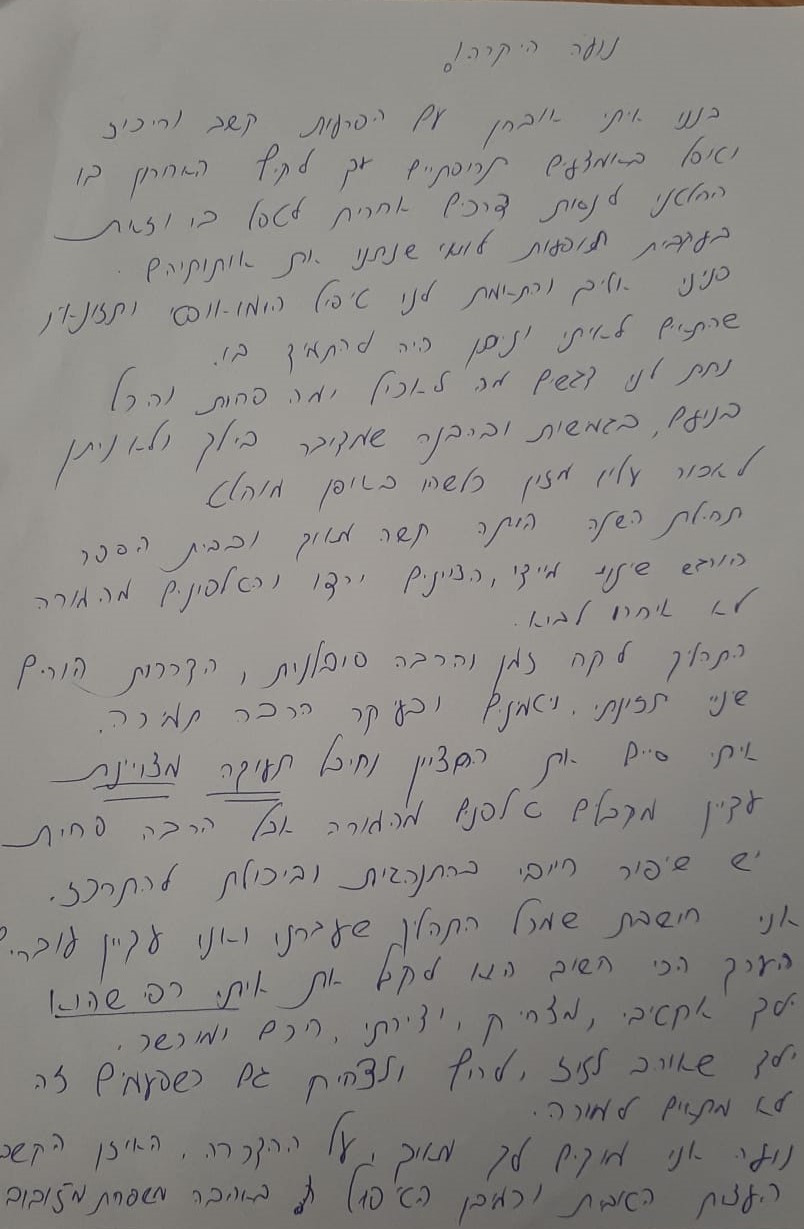 נועה היקרה!
בננו איתי אובחן עם הפרעות קשב וריכוז
וטיפל באמצעים תרופתיים עד לקיץ האחרון בו
החלטנו לנסות דרכים אחרות לטפל בו וזאת
בעקבות תופעות לוואי שנתנו את אותותיהם.
פנינו אליך והתאמת לנו טיפול הומואופטי ותזונאי
שהתאים לאיתי וניתן היה להתמיד בו.
נתת לנו דגשים מה לאכול ומה פחות והכל
בנועם, בגמישות ובהבנה שמדובר בילד ולא ניתן
לאסור עליו מזון כלשהו באופן מוחלט
תחילת השנה היתה קשה מאוד ובבית הספר
הורגש שינוי מיידי, הציונים ירדו והטלפונים מהמורה
לא איחרו לבוא.
התהליך לקח זמן והרבה סובלנות, הדרכות הורים
שינוי תזונתי, ויטמינים ובעיקר הרבה תמיכה.
איתי סיים את הסמסטר וקיבל תעודה מצויינת
עדיין מקבלים טלפונים מהמורה אבל הרבה פחות
יש שיפור חיובי בהתנהגות וביכולת להתרכז.
אני חושבת שמכל התהליך שעברנו ואנו עדיין עוברים
הערך הכי חשוב הוא לקבל את איתי כפי שהוא
ילד אקטיבי, מצחיק, יצירתי, חכם ומוכשר.
ילד שאוהב לזוז, לרוץ ולהצחיק גם כשלפעמים זה
לא מתאים למורה.
נועה אנו מודים לך מאוד, על ההדרכה, האיזון הקשב
העצות הטובות וכמובן הטיפול באהבה